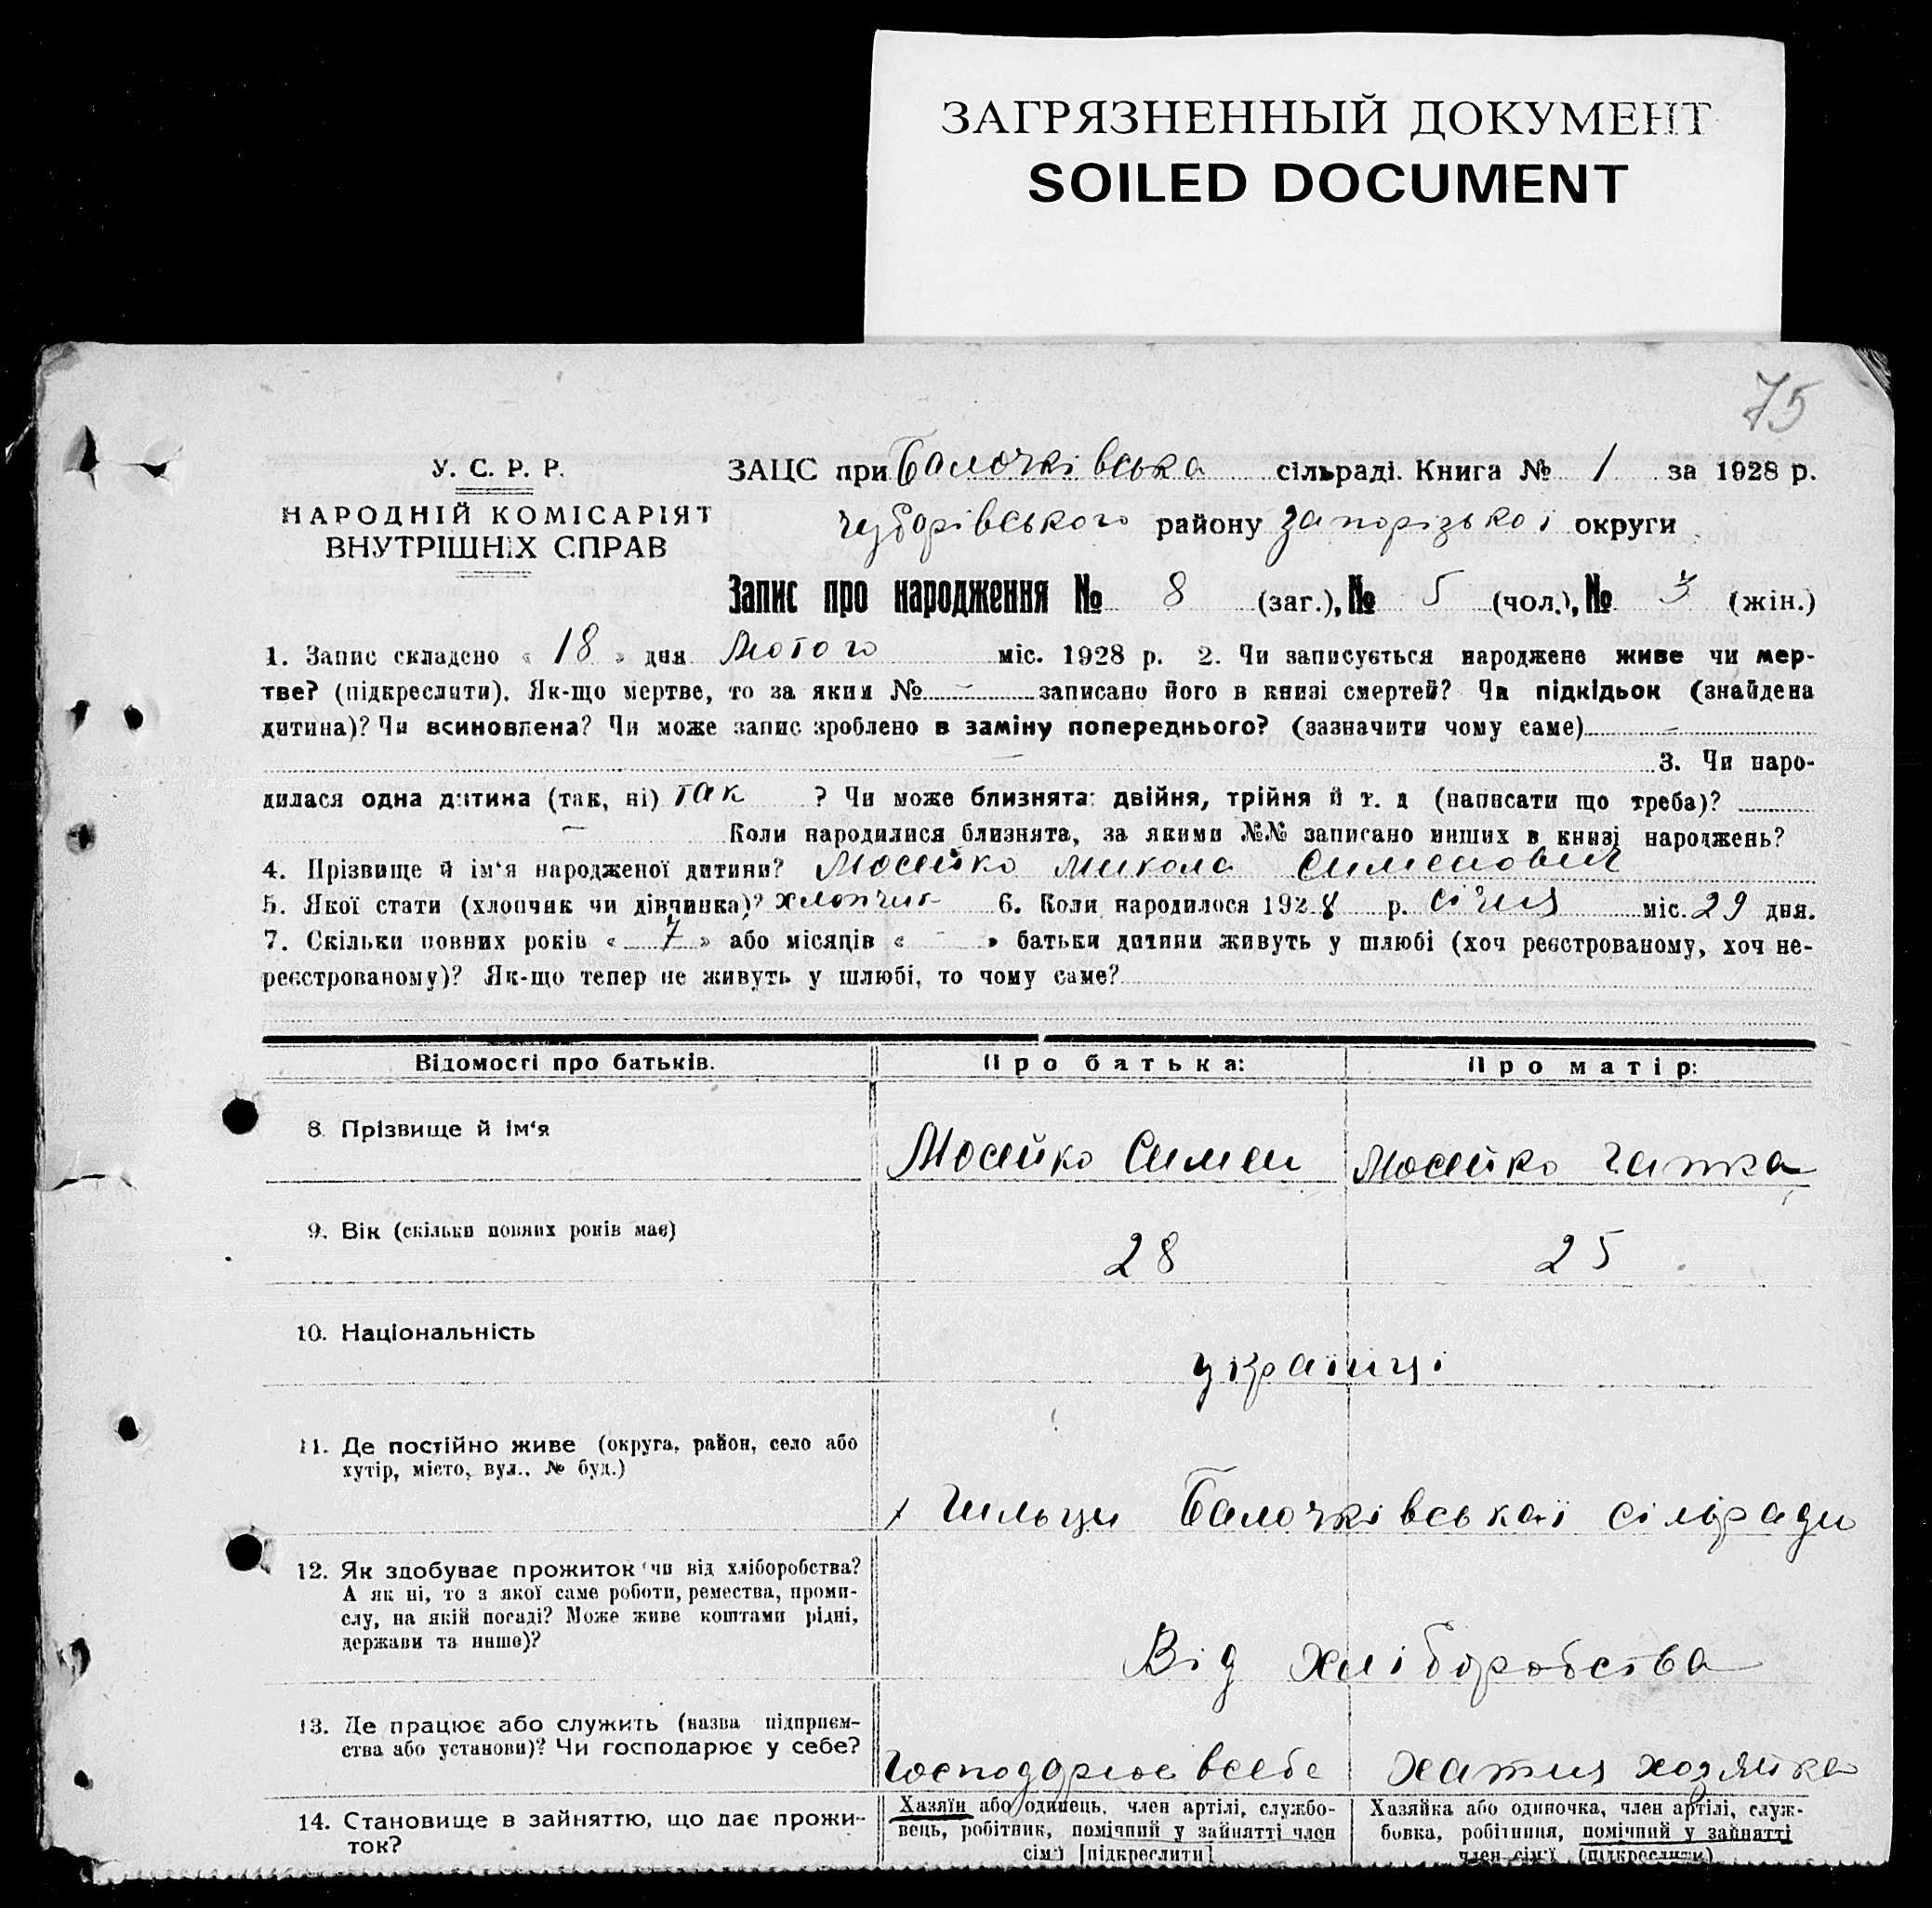 ЗАГРЯЗНЕННЫЙ ДОКУМЕНТ
SOILED DOCUMENT
75
У. С. Р. Р.
НАРОДНІЙ КОМІСАРІЯТ
ВНУТРІШНІХ СПРАВ
ЗАЦС при Балочківська сільраді. Книга № 1 за 1928 р.
Чубарівського району Запорізької округи
Запис про народження № 8 (заг.), № 5 (чол.), № 3 (жін.)
1. Запис складено « 18 » дня Лютого міс. 1928 р. 2. Чи записується народжене живе чи мер-
тве? (підкреслити). Як-що мертве, то за яким № – записано його в книзі смертей? Чи підкідьок (знайдена
дитина)? Чи всиновлена? Чи може запис зроблено в заміну попереднього? (зазначити чому саме) –
– 3. Чи наро-
дилася одна дитина (так, ні) так ? Чи може близнята: двійня, трійня й т. д (написати що треба)?
– Коли народилися близнята, за якими №№ записано инших в книзі народжень?
4. Прізвище й ім'я народженої дитини? Мосейко Микола Сименович
5. Якої стати (хлопчик чи дівчинка)? хлопчик 6. Коли народилося 1928 р. січня міс. 29 дня.
7. Скільки повних років « 7 » або місяців « - » батьки дитини живуть у шлюбі (хоч реєстрованому, хоч не-
реєстрованому)? Як-що тепер не живуть у шлюбі, то чому саме?
Відомості про батьків. Про батька: Про матір:
8. Прізвище й ім'я Мосейко Симен Мосейко Гапка
9. Вік (скільки повних років має) 28 25
10. Національність українці
11. Де постійно живе (округа, район, село або
хутір, місто, вул., № буд.)
Балочківської сільради
12. Як здобуває прожиток (чи від хліборобства?
А як ні, то з якої саме роботи, ремества, проми-
слу, на якій посаді? Може живе коштами рідні,
держави та инше)?
Від хліборобства
13. Де працює або служить (назва підприєм-
ства або установи)? Чи господарює у себе?
Господарює всебе хатня хозяйка
14. Становище в зайняттю, що дає прожи-
ток?
Хазяїн або одинець, член артілі, службо-
вець, робітник, помічний у зайнятті член
сім'ї [підкреслити]
Хазяйка або одиночка, член артілі, служ-
бовка, робітниця, помічний у зайнятті
член сім'ї (підкреслити)